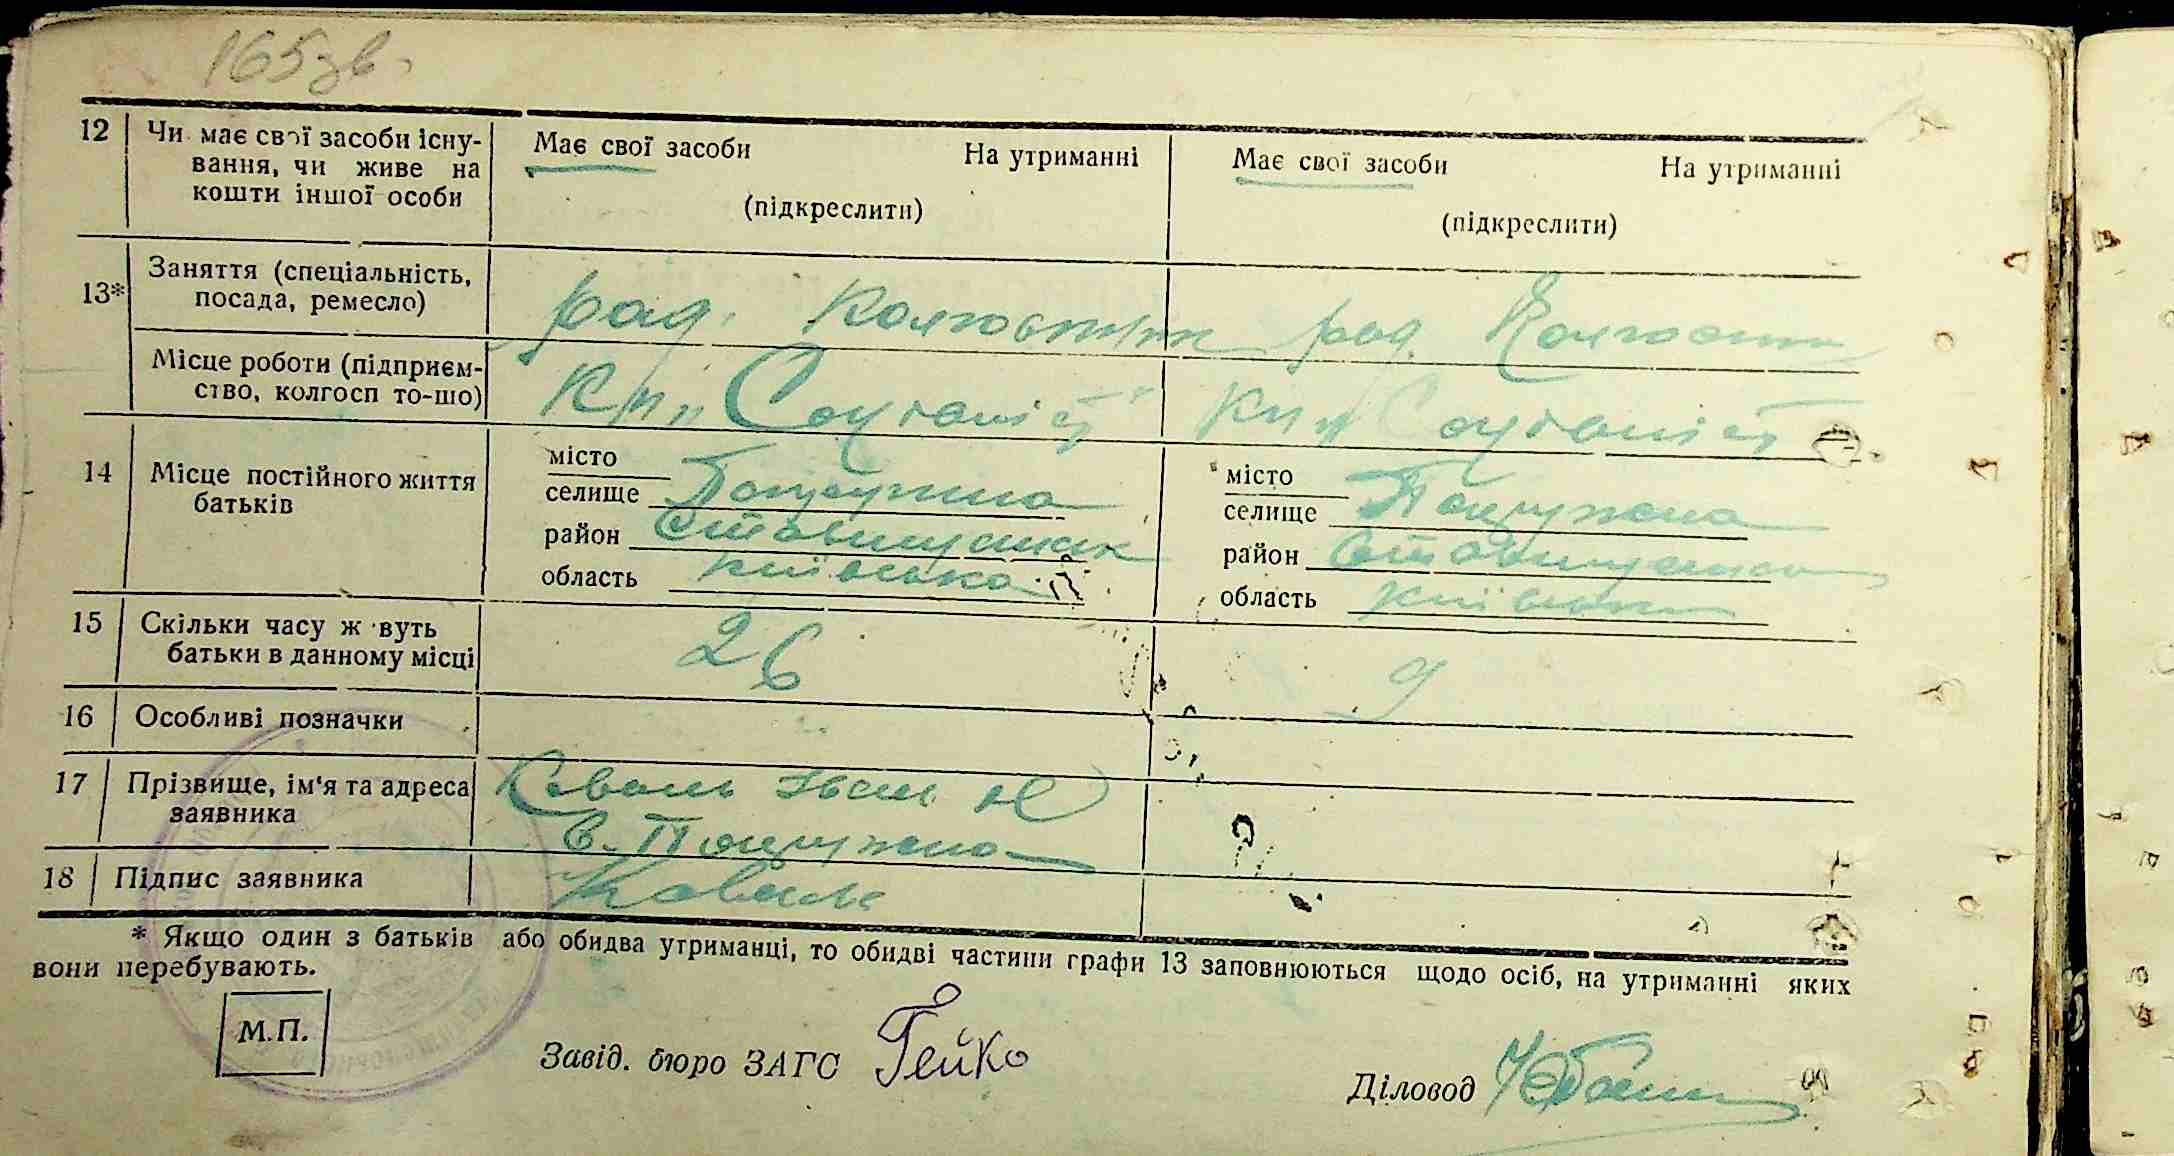 165зв.
12 Чи має свої засоби існу-
вання, чи живе на
кошти іншої особи
Має свої засоби На утриманні
(підкреслити)
Має свої засоби На утриманні
(підкреслити)
13* Заняття (спеціальність,
посада, ремесло)
ряд. Колгоспник
ряд. Колгоспн
Місце роботи (підприєм-
ство, колгосп то-що)
14 Місце постійного життя
батьків
місто
селище
район
область Київська
місто
селище
район
область Київськ
15 Скільки часу ж вуть
батьки в данному місці
26
9
16 Особливі позначки
17 Прізвище, ім'я та адреса
заявника
Коваль Іван
с.
18 Підпис заявника
Коваль
* Якщо один з батьків або обидва утриманці, то обидві частини графи 13 заповнюються щодо осіб, на утриманні яких
вони перебувають.
М.П.
Завід. бюро ЗАГС Гейко
Діловод